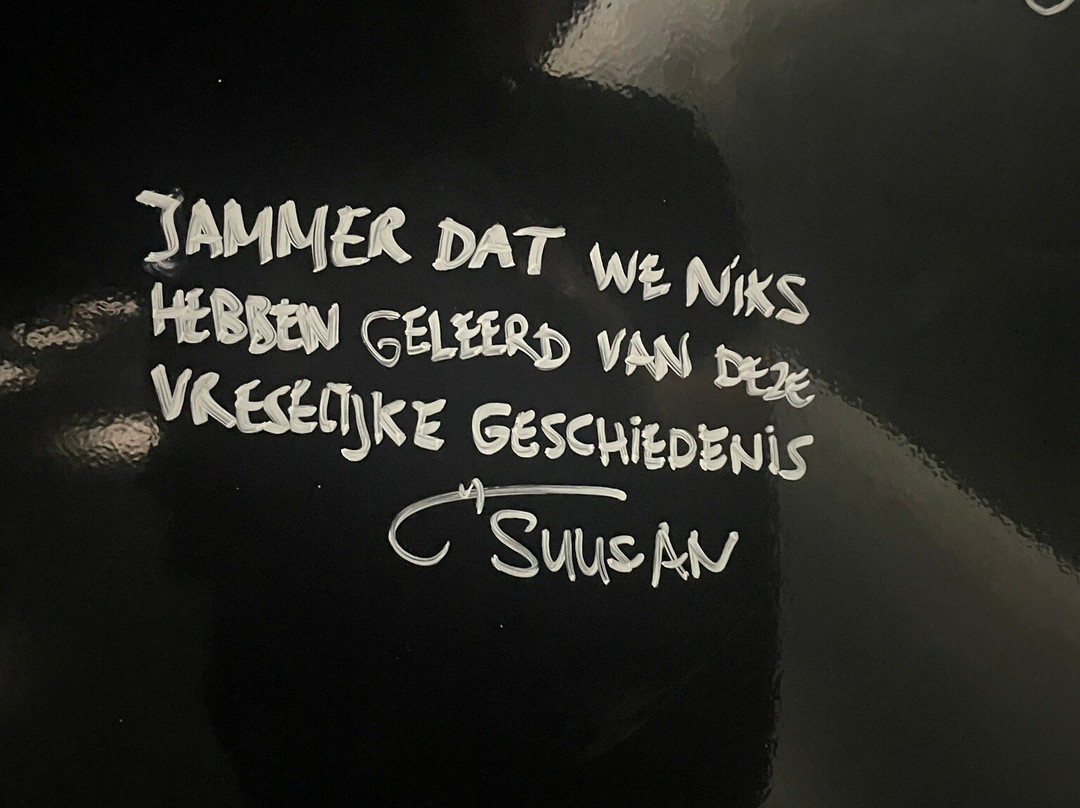 JAMMER DAT WE NIKS
HEBBEN GELEERD VAN DEZE
VRESELIJKE GESCHIEDENIS
SUUSAN